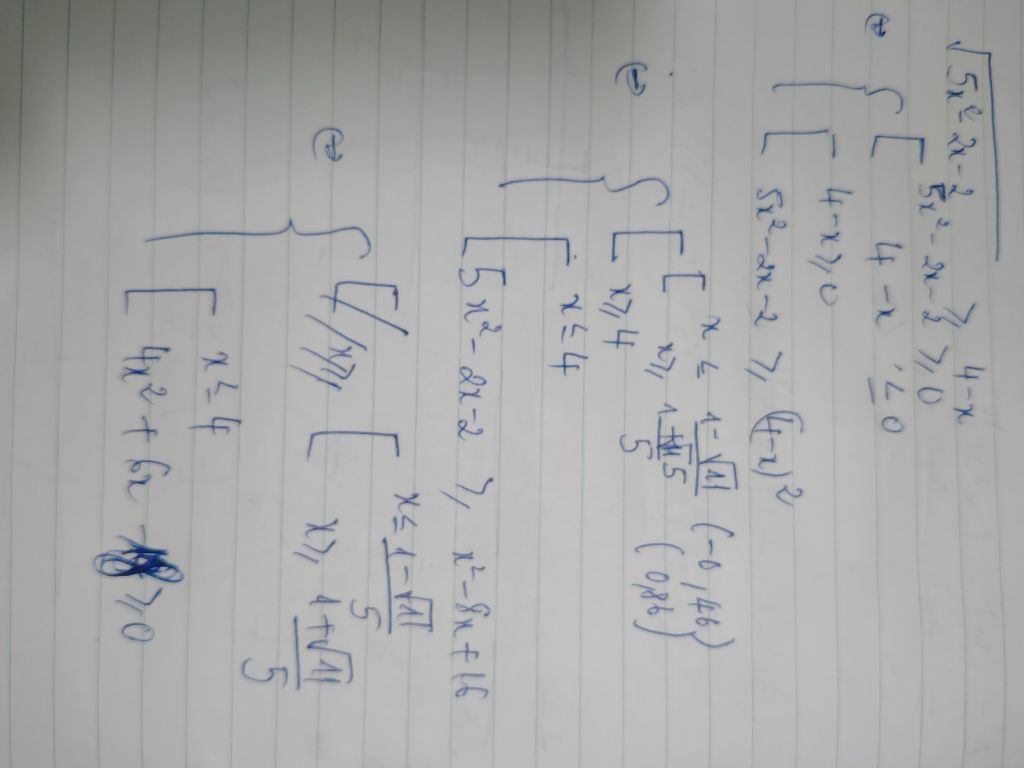 √5x² 2x-2 ≥ 4-x
⇔ { [ 5x² - 2x - 2 ≥ 0
4 - x ≤ 0
{ [ 4-x ≥ 0
5x² - 2x - 2 ≥ (4-x)²
⇔ { [ [ x ≤ 1-√11 / 5 (-0,46)
x ≥ 1+√11 / 5 (0,86)
x ≥ 4
[ x ≤ 4
5x² - 2x - 2 ≥ x² - 8x + 16
⇔ { [ x ≥ [ x ≤ 1-√11 / 5
x ≥ 1+√11 / 5
[ x ≤ 4
4x² + 6x - ≥ 0